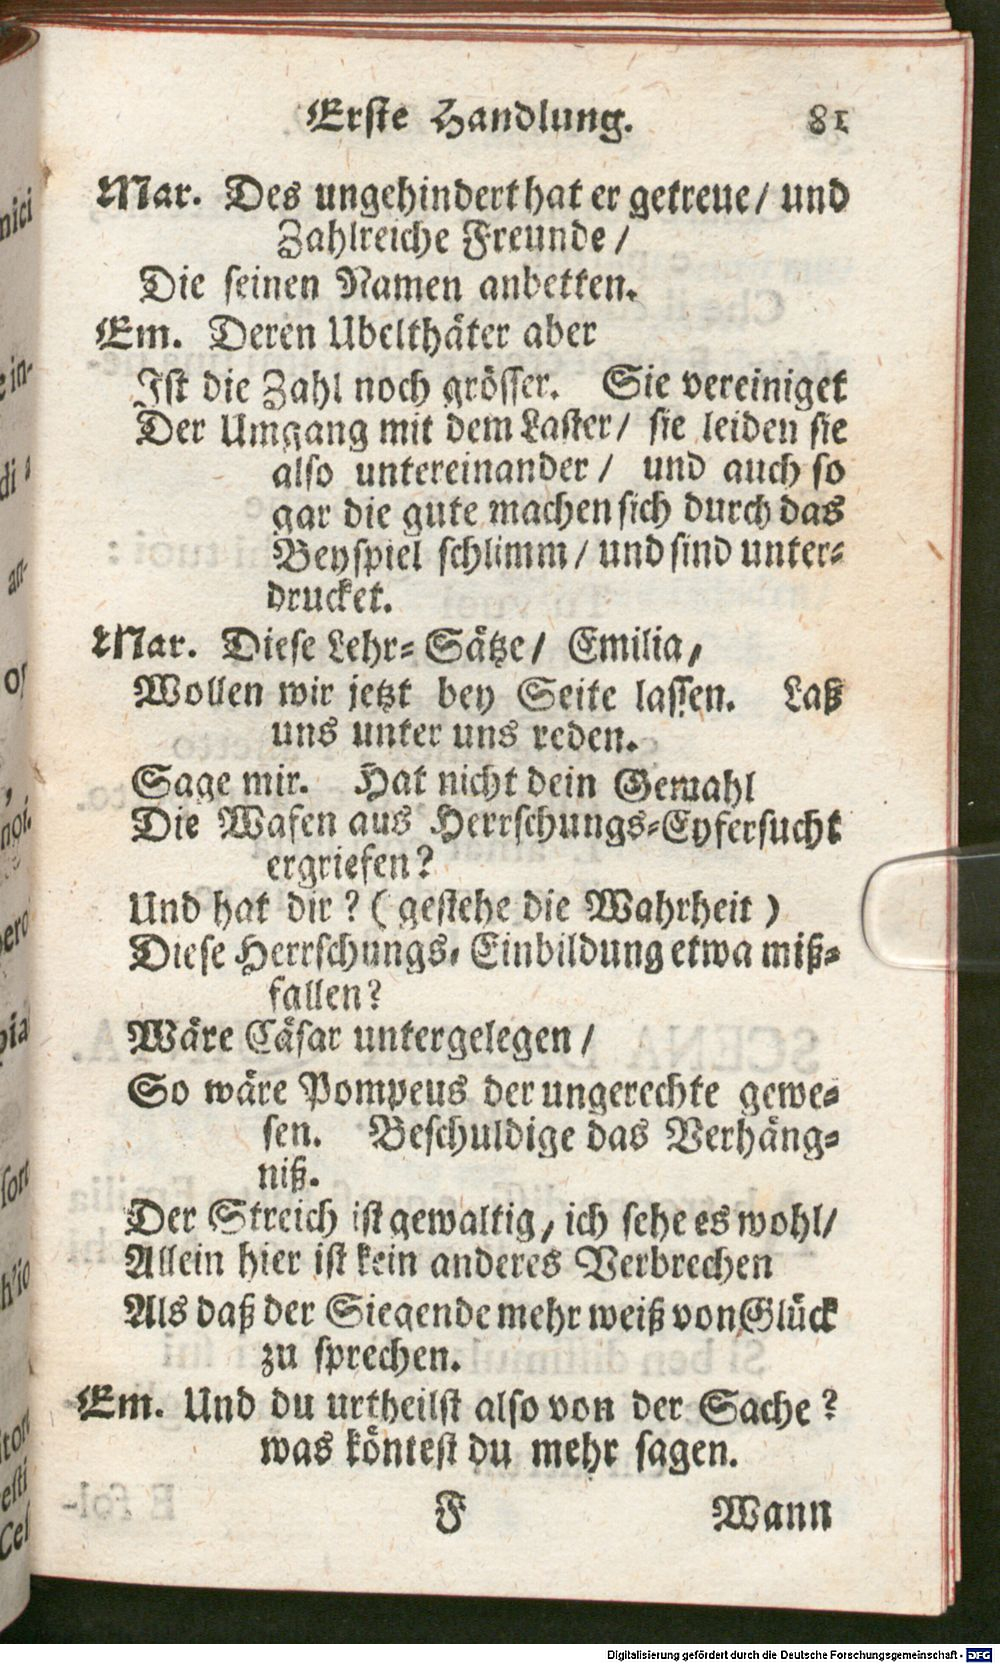 Erste Handlung. 81
Mar. Des ungehindert hat er getreue / und
Zahlreiche Freunde /
Die seinen Namen anbetten.
Em. Deren Ubelthäter aber
Ist die Zahl noch grösser. Sie vereiniget
Der Umgang mit dem Laster / sie leiden sie
also untereinander / und auch so
gar die gute machen sich durch das
Beyspiel schlimm / und sind unter-
drucket.
Mar. Diese Lehr-Sätze / Emilia,
Wollen wir jetzt bey Seite lassen. Laß
uns unter uns reden.
Sage mir. Hat nicht dein Gemahl
Die Wafen aus Herrschungs-Eyfersucht
ergriefen?
Und hat dir? (gestehe die Wahrheit)
Diese Herrschungs-Einbildung etwa miß-
fallen?
Wäre Cäsar untergelegen /
So wäre Pompeus der ungerechte gewe-
sen. Beschuldige das Verhäng-
niß.
Der Streich ist gewaltig, ich sehe es wohl /
Allein hier ist kein anderes Verbrechen
Als daß der Siegende mehr weiß von Glück
zu sprechen.
Em. Und du urtheilst also von der Sache?
was köntest du mehr sagen.
F Wann
Digitalisierung gefördert durch die Deutsche Forschungsgemeinschaft - DFG